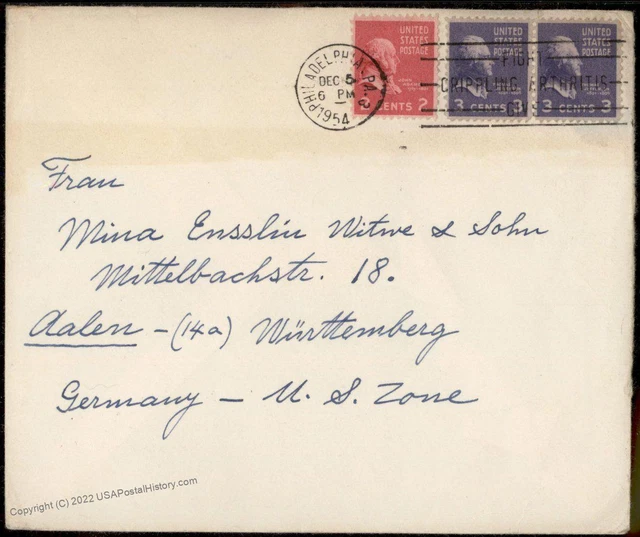 UNITED STATES POSTAGE
UNITED STATES POSTAGE
UNITED STATES POSTAGE
JOHN ADAMS
CENTS 2
3 CENTS 3
3 CENTS 3
PHILADELPHIA, PA. 2
DEC 5
6 PM
1954
FIGHT
CRIPPLING ARTHRITIS
Frau
Mina Ensslin Witwe & Sohn
Mittelbachstr. 18.
Aalen - (14a) Württemberg
Germany - U. S. Zone
Copyright (C) 2022 USAPostalHistory.com